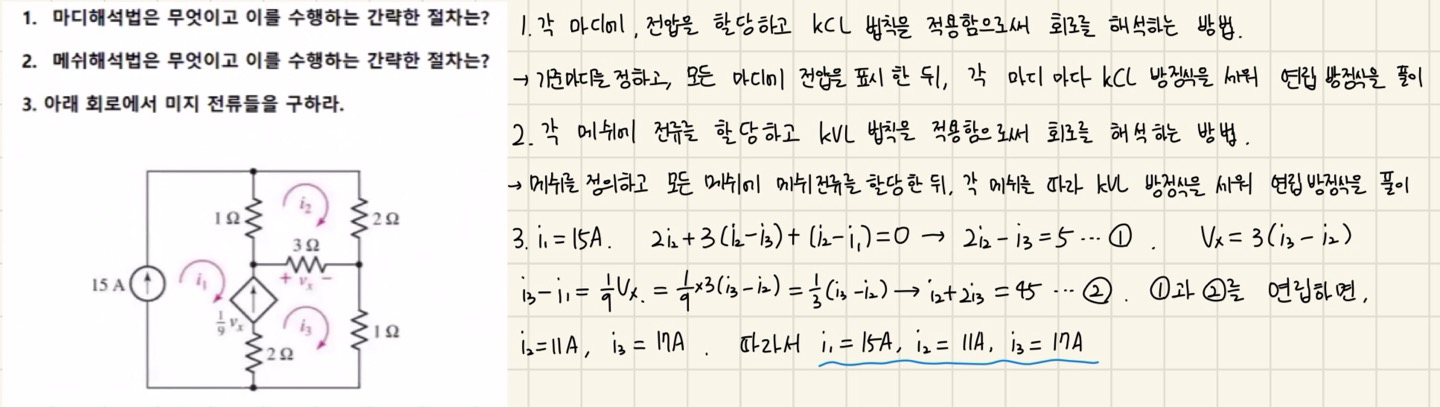 1. 마디해석법은 무엇이고 이를 수행하는 간략한 절차는?
2. 메쉬해석법은 무엇이고 이를 수행하는 간략한 절차는?
3. 아래 회로에서 미지 전류들을 구하라.
1 Ω
i₂
2 Ω
3 Ω
15 A
i₁
+ vₓ −
1/9 vₓ
i₃
1 Ω
2 Ω
1. 각 마디에, 전압을 할당하고 KCL 법칙을 적용함으로써 회로를 해석하는 방법.
→ 기준마디를 정하고, 모든 마디에 전압을 표시 한 뒤, 각 마디 마다 KCL 방정식을 세워 연립 방정식을 풀이
2. 각 메쉬에 전류를 할당하고 KVL 법칙을 적용함으로써 회로를 해석하는 방법.
→ 메쉬를 정의하고 모든 메쉬에 메쉬전류를 할당한 뒤, 각 메쉬를 따라 KVL 방정식을 세워 연립방정식을 풀이
3. i₁ = 15A. 2i₂ + 3(i₂-i₃) + (i₂-i₁) = 0 → 2i₂ - i₃ = 5 ··· ①. Vₓ = 3(i₃ - i₂)
i₃ - i₁ = 1/9 Vₓ. = 1/9 × 3(i₃ - i₂) = 1/3 (i₃ - i₂) → i₂ + 2i₃ = 45 ··· ②. ①과 ②를 연립하면,
i₂ = 11A, i₃ = 17A. 따라서 i₁ = 15A, i₂ = 11A, i₃ = 17A